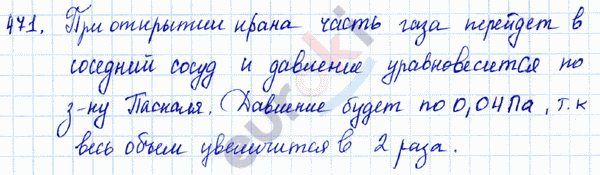 471. При открытии крана часть газа перейдет в
соседний сосуд и давление уравновесится по
з-ну Паскаля. Давление будет по 0,04 Па, т.к
весь объем увеличится в 2 раза.
euroki